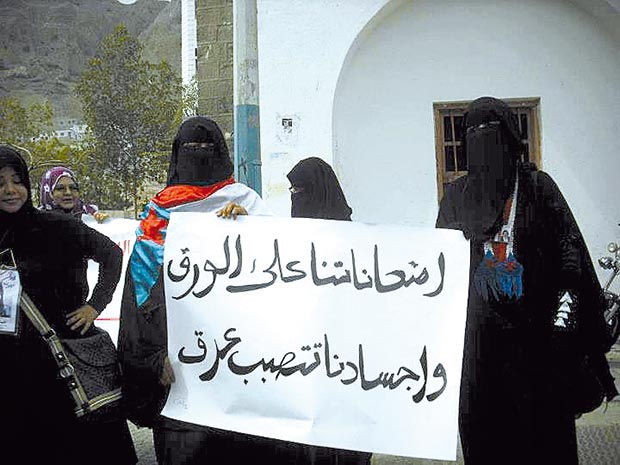 امتحاناتنا على الورق
واجسادنا تتصبب عرق